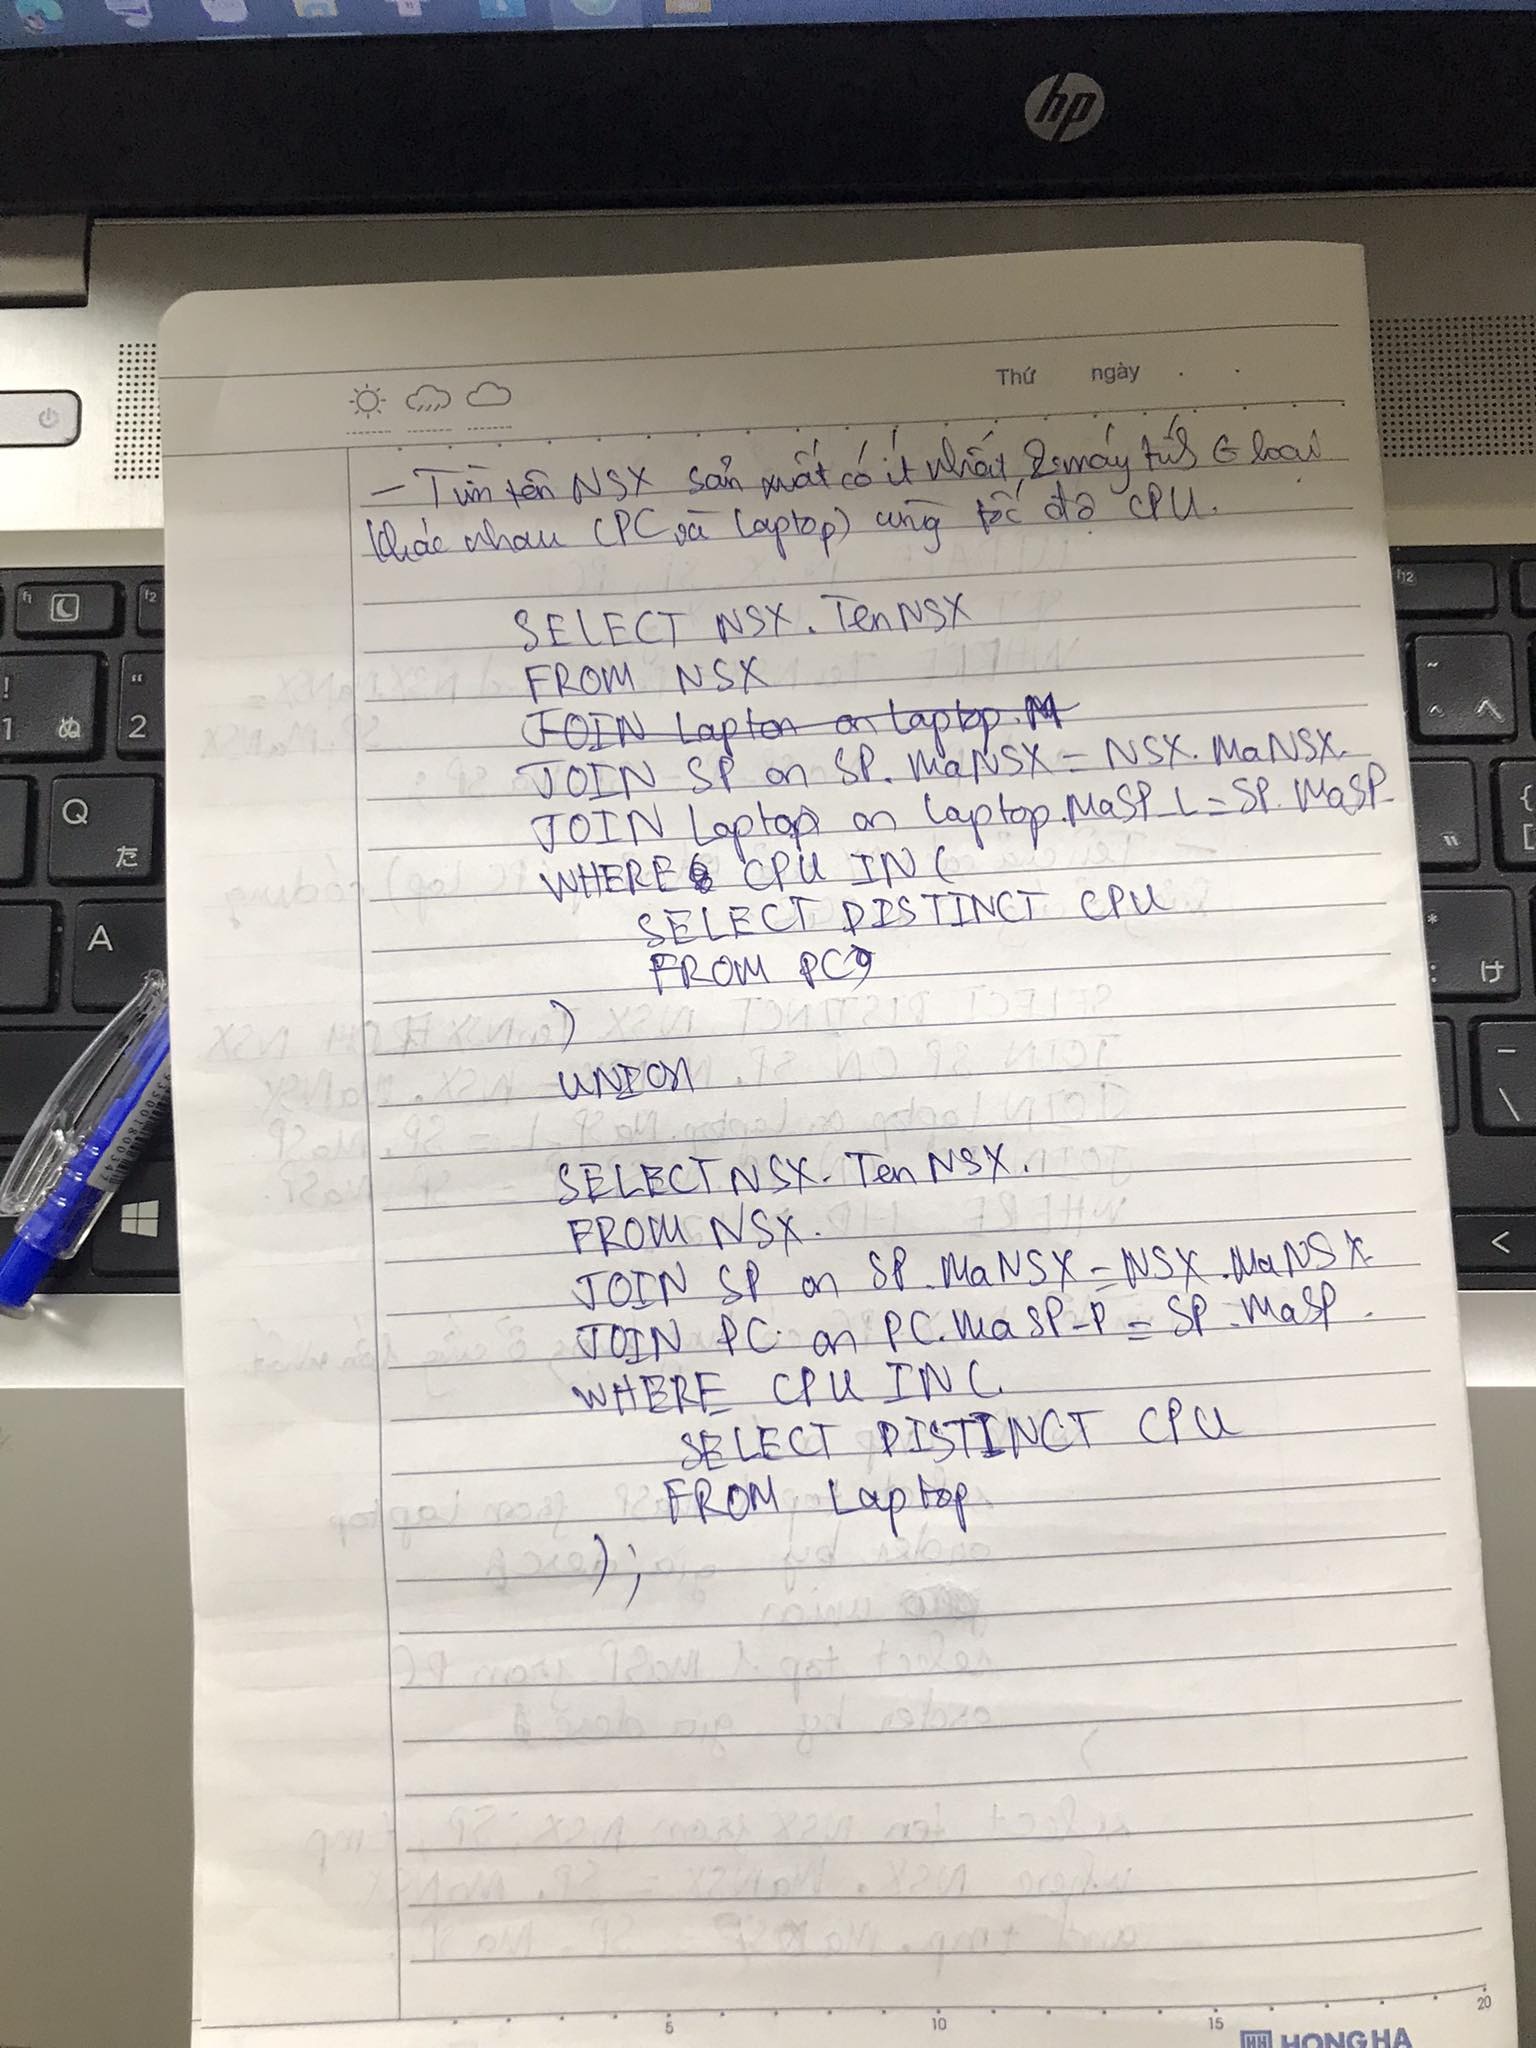 hp
Thứ ngày
- Tìm tên NSX sản xuất có ít nhất 2 máy tính ở loại
khác nhau (PC và laptop) cùng tốc độ CPU.
SELECT NSX.TenNSX
FROM NSX
JOIN Lapton on laptop.M
JOIN SP on SP.MaNSX = NSX.MaNSX.
JOIN Laptop on laptop.MaSP_L = SP.MaSP
WHERE CPU IN (
SELECT DISTINCT CPU
FROM PC
)
UNION
SELECT NSX.TenNSX.
FROM NSX.
JOIN SP on SP.MaNSX = NSX.MaNSX.
JOIN PC on PC.MaSP-P = SP.MaSP.
WHERE CPU IN (
SELECT DISTINCT CPU
FROM Laptop
);
5 10 15 20
HH HONG HA
f1
f2
f12
!
1 ぬ
"
2
Q
た
A
*
: け
<
\